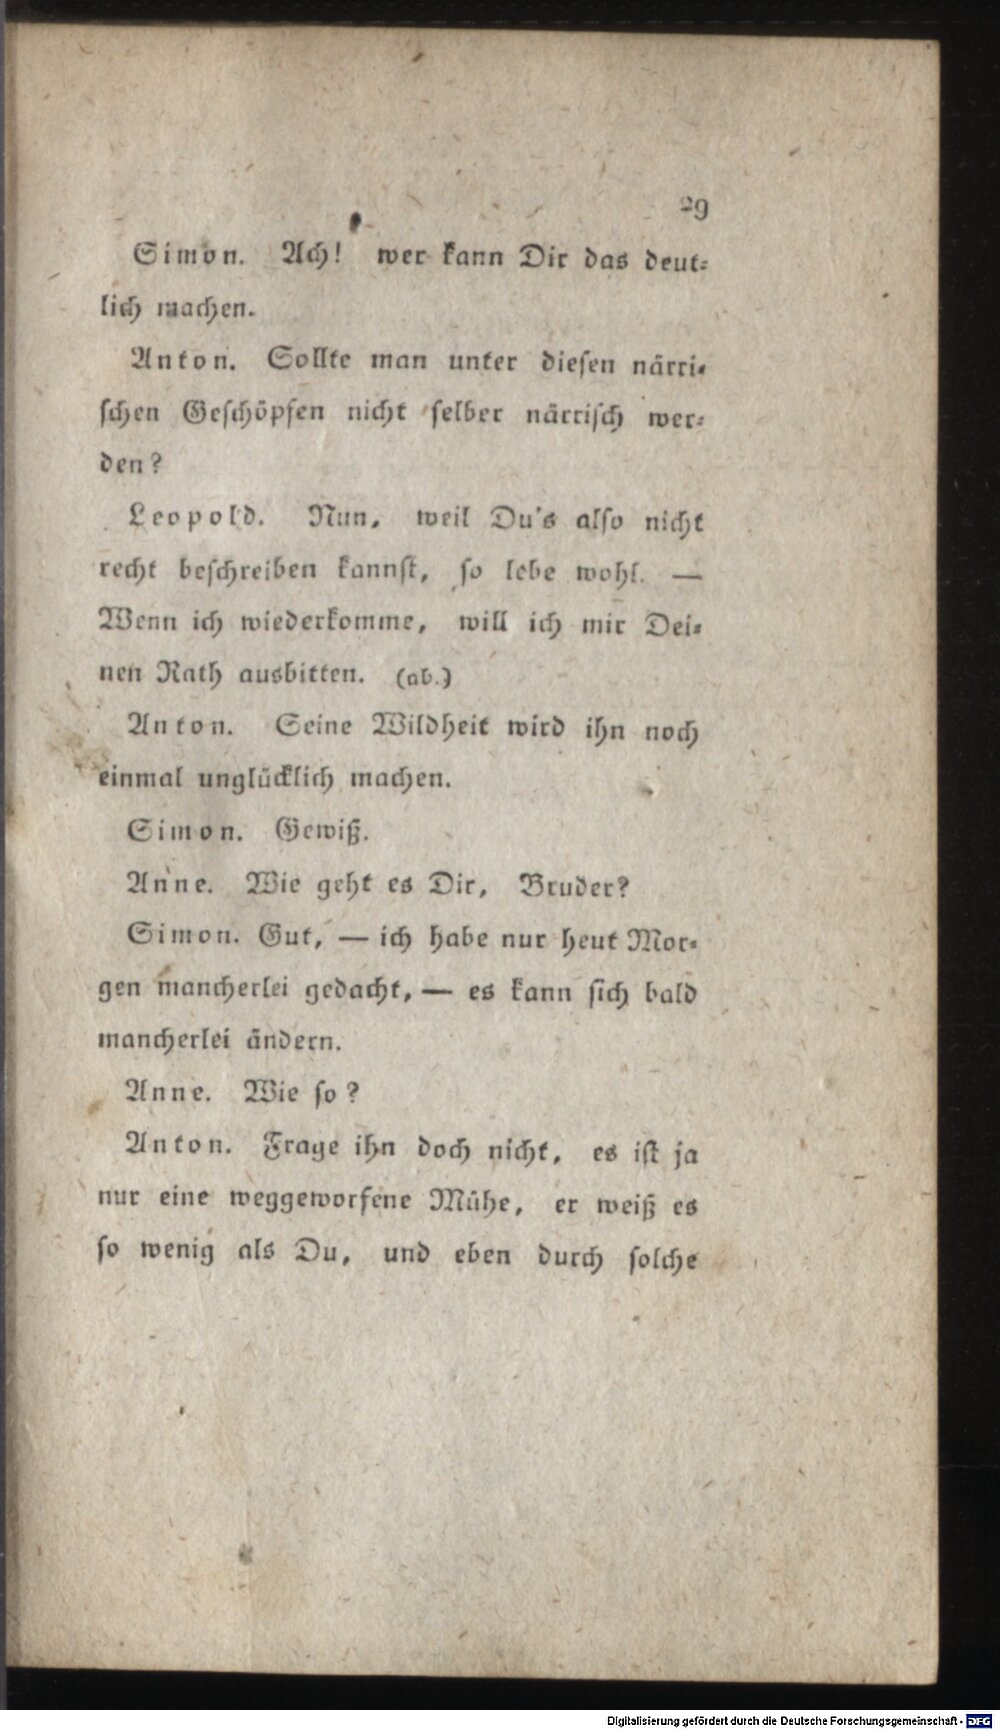 29
Simon. Ach! wer kann Dir das deut-
lich machen.
Anton. Sollte man unter diesen närri-
schen Geschöpfen nicht selber närrisch wer-
den?
Leopold. Nun, weil Du's also nicht
recht beschreiben kannst, so lebe wohl. —
Wenn ich wiederkomme, will ich mir Dei-
nen Rath ausbitten. (ab.)
Anton. Seine Wildheit wird ihn noch
einmal unglücklich machen.
Simon. Gewiß.
Anne. Wie geht es Dir, Bruder?
Simon. Gut, — ich habe nur heut Mor-
gen mancherlei gedacht, — es kann sich bald
mancherlei ändern.
Anne. Wie so?
Anton. Frage ihn doch nicht, es ist ja
nur eine weggeworfene Mühe, er weiß es
so wenig als Du, und eben durch solche
Digitalisierung gefördert durch die Deutsche Forschungsgemeinschaft - DFG